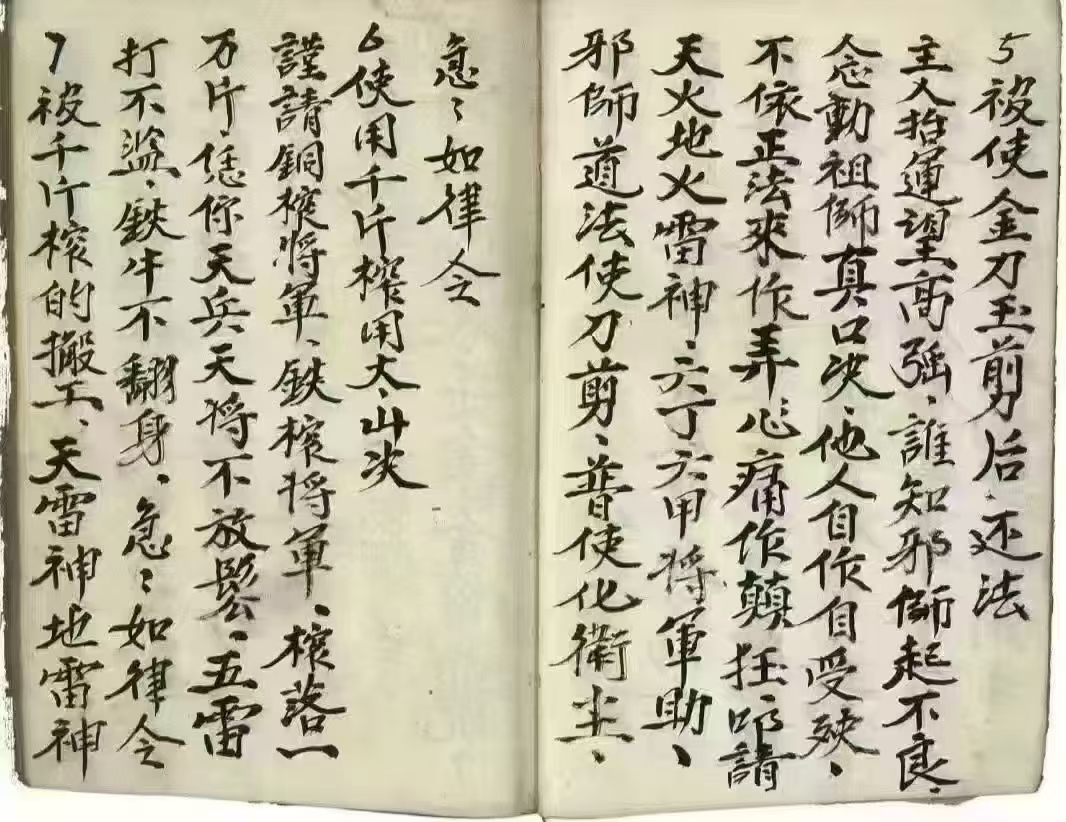 5被使金刀玉剪后、还法
主人抬運望高强、誰知邪師起不良、
念動祖師真口决、他人自作自受殃、
不依正法來作弄心痛作顛狂、叩請
天火地火雷神、六丁六甲將軍助、
邪師道法使刀剪、普使化衛尘、
急〻如律令
6使用千斤榨用大、山决
謹請銅榨將軍、鉄榨將軍、榨落一
万斤恁你天兵天将不放鬆、五雷
打不滥、鉄牛不翻身、急〻如律令
7被千斤榨的搬工、天雷神地雷神